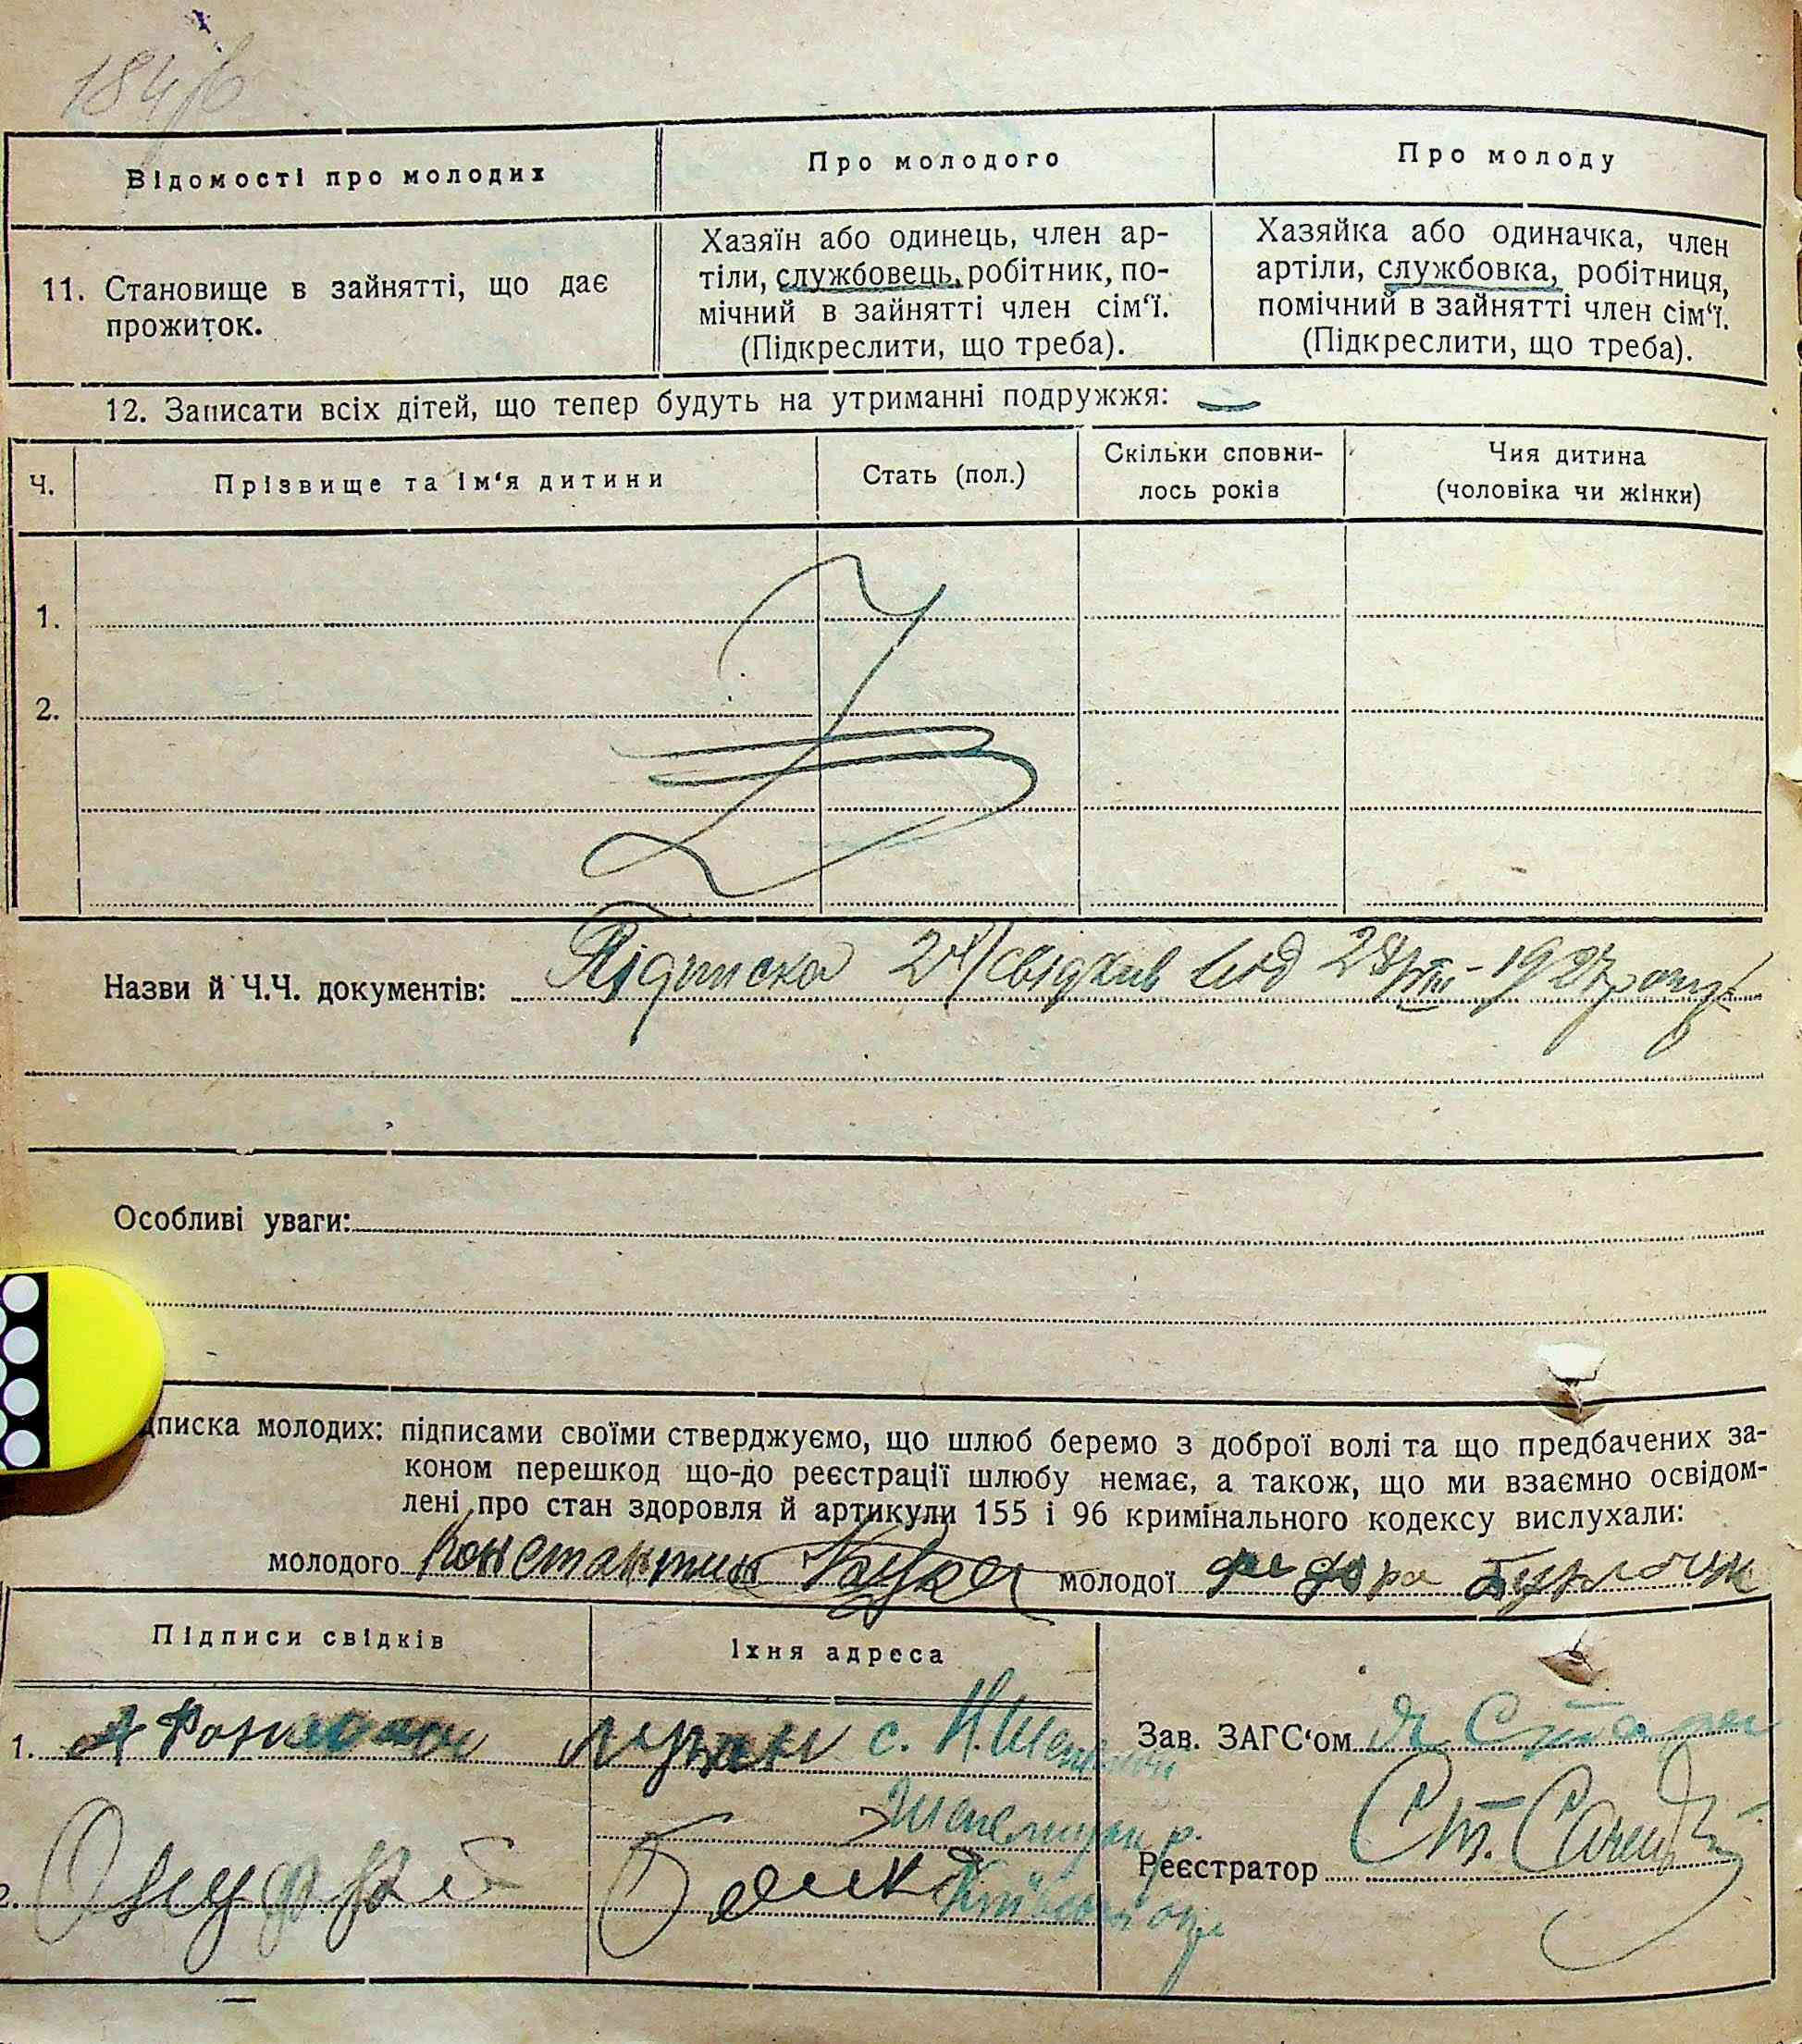 Відомості про молодих
Про молодого
Про молоду
11. Становище в зайнятті, що дає
прожиток.
Хазяїн або одинець, член ар-
тіли, службовець, робітник, по-
мічний в зайнятті член сім'ї.
(Підкреслити, що треба).
Хазяйка або одиначка, член
артіли, службовка, робітниця,
помічний в зайнятті член сім'ї.
(Підкреслити, що треба).
12. Записати всіх дітей, що тепер будуть на утриманні подружжя: —
Ч.
Прізвище та ім'я дитини
Стать (пол.)
Скільки сповни-
лось років
Чия дитина
(чоловіка чи жінки)
1.
2.
Назви й Ч.Ч. документів: Підписка 2х свідків від 28/VIII-1927 року
Особливі уваги:
дписка молодих: підписами своїми стверджуємо, що шлюб беремо з доброї волі та що предбачених за-
коном перешкод що-до реєстрації шлюбу немає, а також, що ми взаємно освідом-
лені про стан здоровля й артикули 155 і 96 кримінального кодексу вислухали:
молодого Константин молодої Федора
Підписи свідків
Їхня адреса
1. с.
Зав. ЗАГС'ом
р.
Реєстратор
Онуфрій